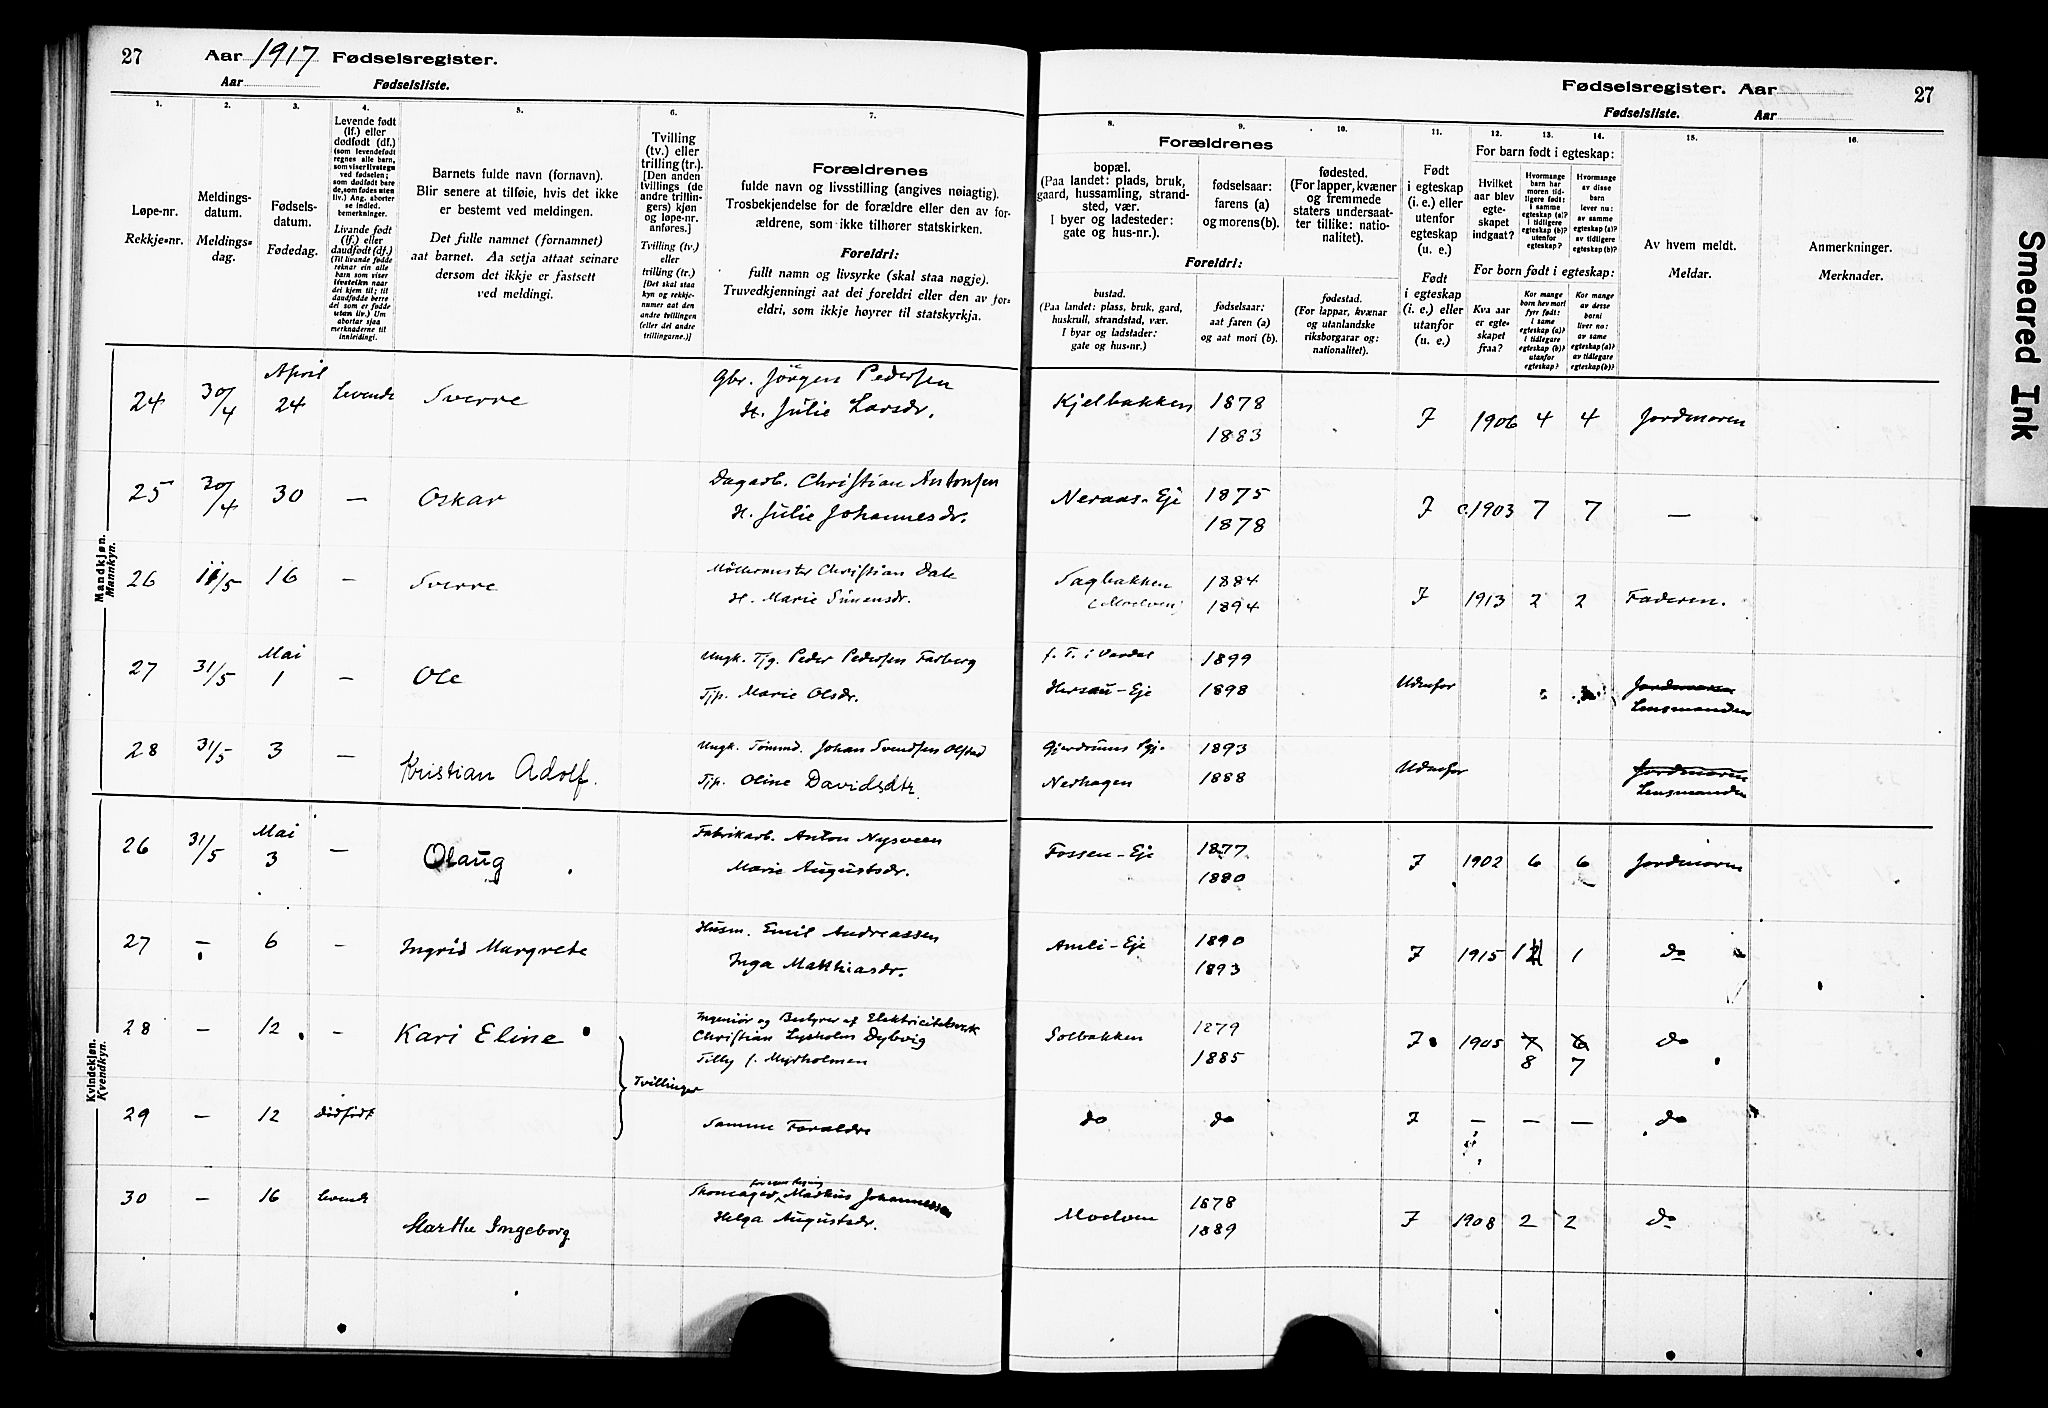 27 Aar 1917 Fødselsregister.
Aar Fødselsliste.
Fødselsregister. Aar 27
Fødselsliste. Aar
1. 2. 3. 4. 5. 6. 7.
Løpe-nr.
Rekkje-nr.
Meldings-
datum.
Meldings-
dag.
Fødsels-
datum.
Fødedag.
Levende født
(lf.) eller
dødfødt (df.)
(som levendefødt
regnes alle barn,
som viser livstegn
ved fødselen;
som dødfødt bare
de, som fødes uten
liv.) Ang. aborter
se indled.
bemerkninger.
Livande født
(lf.) eller
daudfødt (df.)
(Til livande fødde
reknar ein alle
barn som viser
livsteikn naar
dei kjem til; til
daudfødde berre
dei som er fødde
utan liv.) Um
abortar sjaa
merknaderne til
innleidingi.
Barnets fulde navn (fornavn).
Blir senere at tilføie, hvis det ikke
er bestemt ved meldingen.
Det fulle namnet (fornamnet)
aat barnet. Aa setja attaat seinare
dersom det ikkje er fastsett
ved meldingi.
Tvilling
(tv.) eller
trilling (tr.).
[Den anden
tvillings (de
andre trillin-
gers) kjøn
og løpe-nr.
anføres.]
Tvilling (tv.)
eller
trilling (tr.)
[Det skal staa
kyn og rekkje-
numer aat den
andre tvillingen
(eller dei andre
trillingarne.)]
Forældrenes
fulde navn og livsstilling (angives nøiagtig).
Trosbekjendelse for de forældre eller den av for-
ældrene, som ikke tilhører statskirken.
Foreldri:
fullt namn og livsyrke (skal staa nøgje).
Truvedkjenningi aat dei foreldri eller den av for-
eldri, som ikkje høyrer til statskyrkja.
8. 9. 10. 11. 12. 13. 14. 15. 16.
Forældrenes
bopæl.
(Paa landet: plads, bruk,
gaard, hussamling, strand-
sted, vær.
I byer og ladesteder:
gate og hus-nr.).
fødselsaar:
farens (a)
og morens (b).
fødested.
(For lapper, kvæner
og fremmede
staters undersaat-
ter tillike: natio-
nalitet).
Foreldri:
bustad.
(Paa landet: plass, bruk, gard,
huskrull, strandstad, vær.
I byar og ladstader:
gate og hus-nr.)
fødselsaar:
aat faren (a)
og aat mori (b).
fødestad.
(For lappar, kvænar
og utanlandske
riksborgarar og:
nationalitet).
Født
i egteskap
(i. e.) eller
utenfor
egteskap
(u. e.)
Født
i egteskap
(i. e.) eller
utanfor
(u. e.)
For barn født i egteskap:
Hvilket
aar blev
egte-
skapet
indgaat?
Hvormange
barn har
moren tid-
ligere født:
i samme
egteskap (a)?
i tidligere
egteskap (b)?
utenfor
egteskap?
Hvormange
av disse
barn
lever nu:
av samme
egteskap (a)?
av tidligere
egteskap (b)?
For born født i egteskap:
Kva aar
er egte-
skapet
fraa?
Kor mange
born hev mori
fyrr født:
i same
egteskap (a)?
i tidlegare
egteskap (b)?
utanfor
egteskap?
Kor mange
av desse
borni
liver no:
av same
egteskap (a)?
av tidlegare
egteskap (b)?
Av hvem meldt.
Meldar.
Anmerkninger.
Merknader.
Mandkjøn.
Mannkyn.
24 30/4 April 24 Levende Sverre Gbr. Jörgen Pedersen
H. Julie Larsdr.
Kjelbakken 1878 1883 I 1906 4 4 Jordmoren
25 30/4 30 — Oskar Dagarb. Christian Antonsen
H. Julie Johannesdr.
Neraas-Eje 1875 1878 I c.1903 7 7 —
26 11/5 16 — Sverre Møllermester Christian Dale
H. Marie Simensdr.
Sagbakken 1884 1894 I 1913 2 2 Faderen.
27 31/5 Mai 1 — Ole Ungk. Tjg. Peder Pedersen Farberg
Tjp. Marie Olsdr.
f. T. i Vardal 1899
Hersau-Eje 1898 Udenfor Jordmoren
Lensmanden
28 31/5 3 — Kristian Adolf. Ungk. Tømmd. Johan Svendsen Olstad
Tjp. Oline Davidsdtr.
Gjerdrums Eje 1893
Nerhagen 1888 Udenfor Jordmoren
Lensmanden
Kvindekjøn.
Kvendkyn.
26 31/5 Mai 3 — Olaug Fabrikarb. Anton Nysveen
Marie Augustsdr.
Fossen-Eje 1877 1880 I 1902 6 6 Jordmoren
27 — 6 — Ingrid Margrete Husm. Emil Andreassen
Inga Matthiasdr.
Amli-Eje 1890 1893 I 1915 1 1 do
28 — 12 — Kari Eline Ingeniør og Bestyrer af Elektricitetsverk
Christian Lysholm Dybvig
Tilly f. Myrholmen
Tvillinger
Solbakken 1879 1885 I 1905 7 6 do
8 7
29 — 12 Dødfødt Samme Forældre
do do I — — — do
30 — 16 Levende Marthe Ingeborg Skomager Markus Johannessen
Helga Augustsdr.
Moelven 1878 1889 I 1908 2 2 do
Smeared Ink